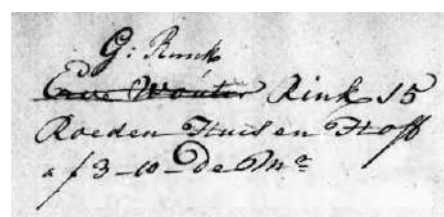 G: Rinck
Erve Wouter Rink 15
Roeden Huis en Hoff
a f 3-10- De Mn